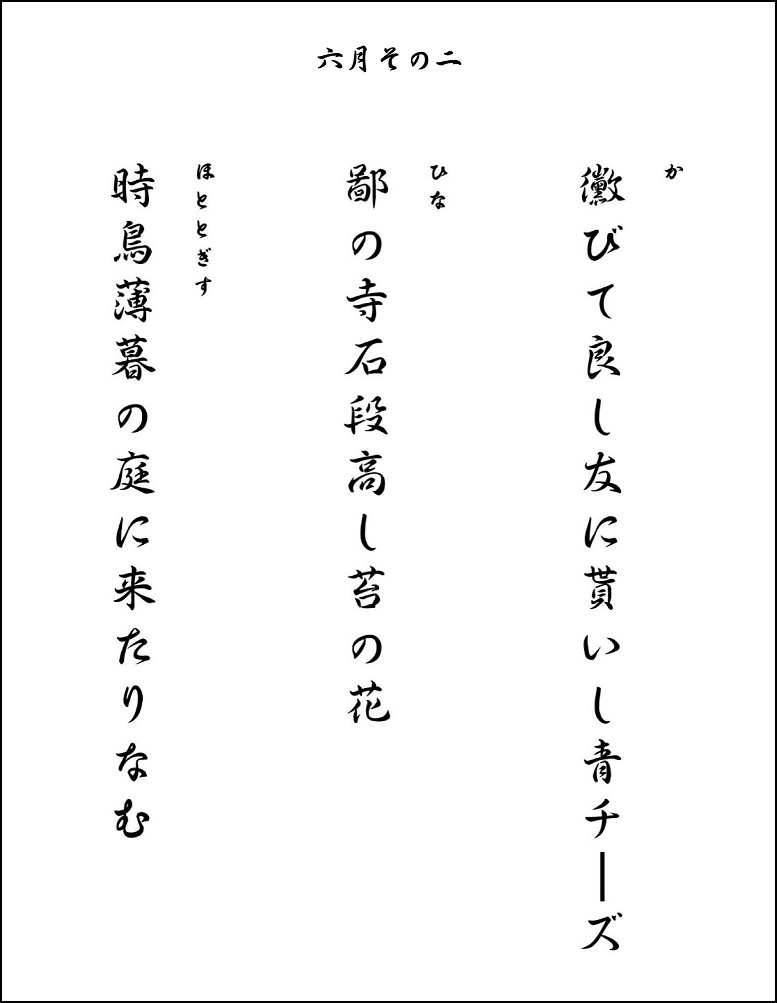 六月その二
か
黴びて良し友に貰いし青チーズ
ひな
鄙の寺石段高し苔の花
ほととぎす
時鳥薄暮の庭に来たりなむ